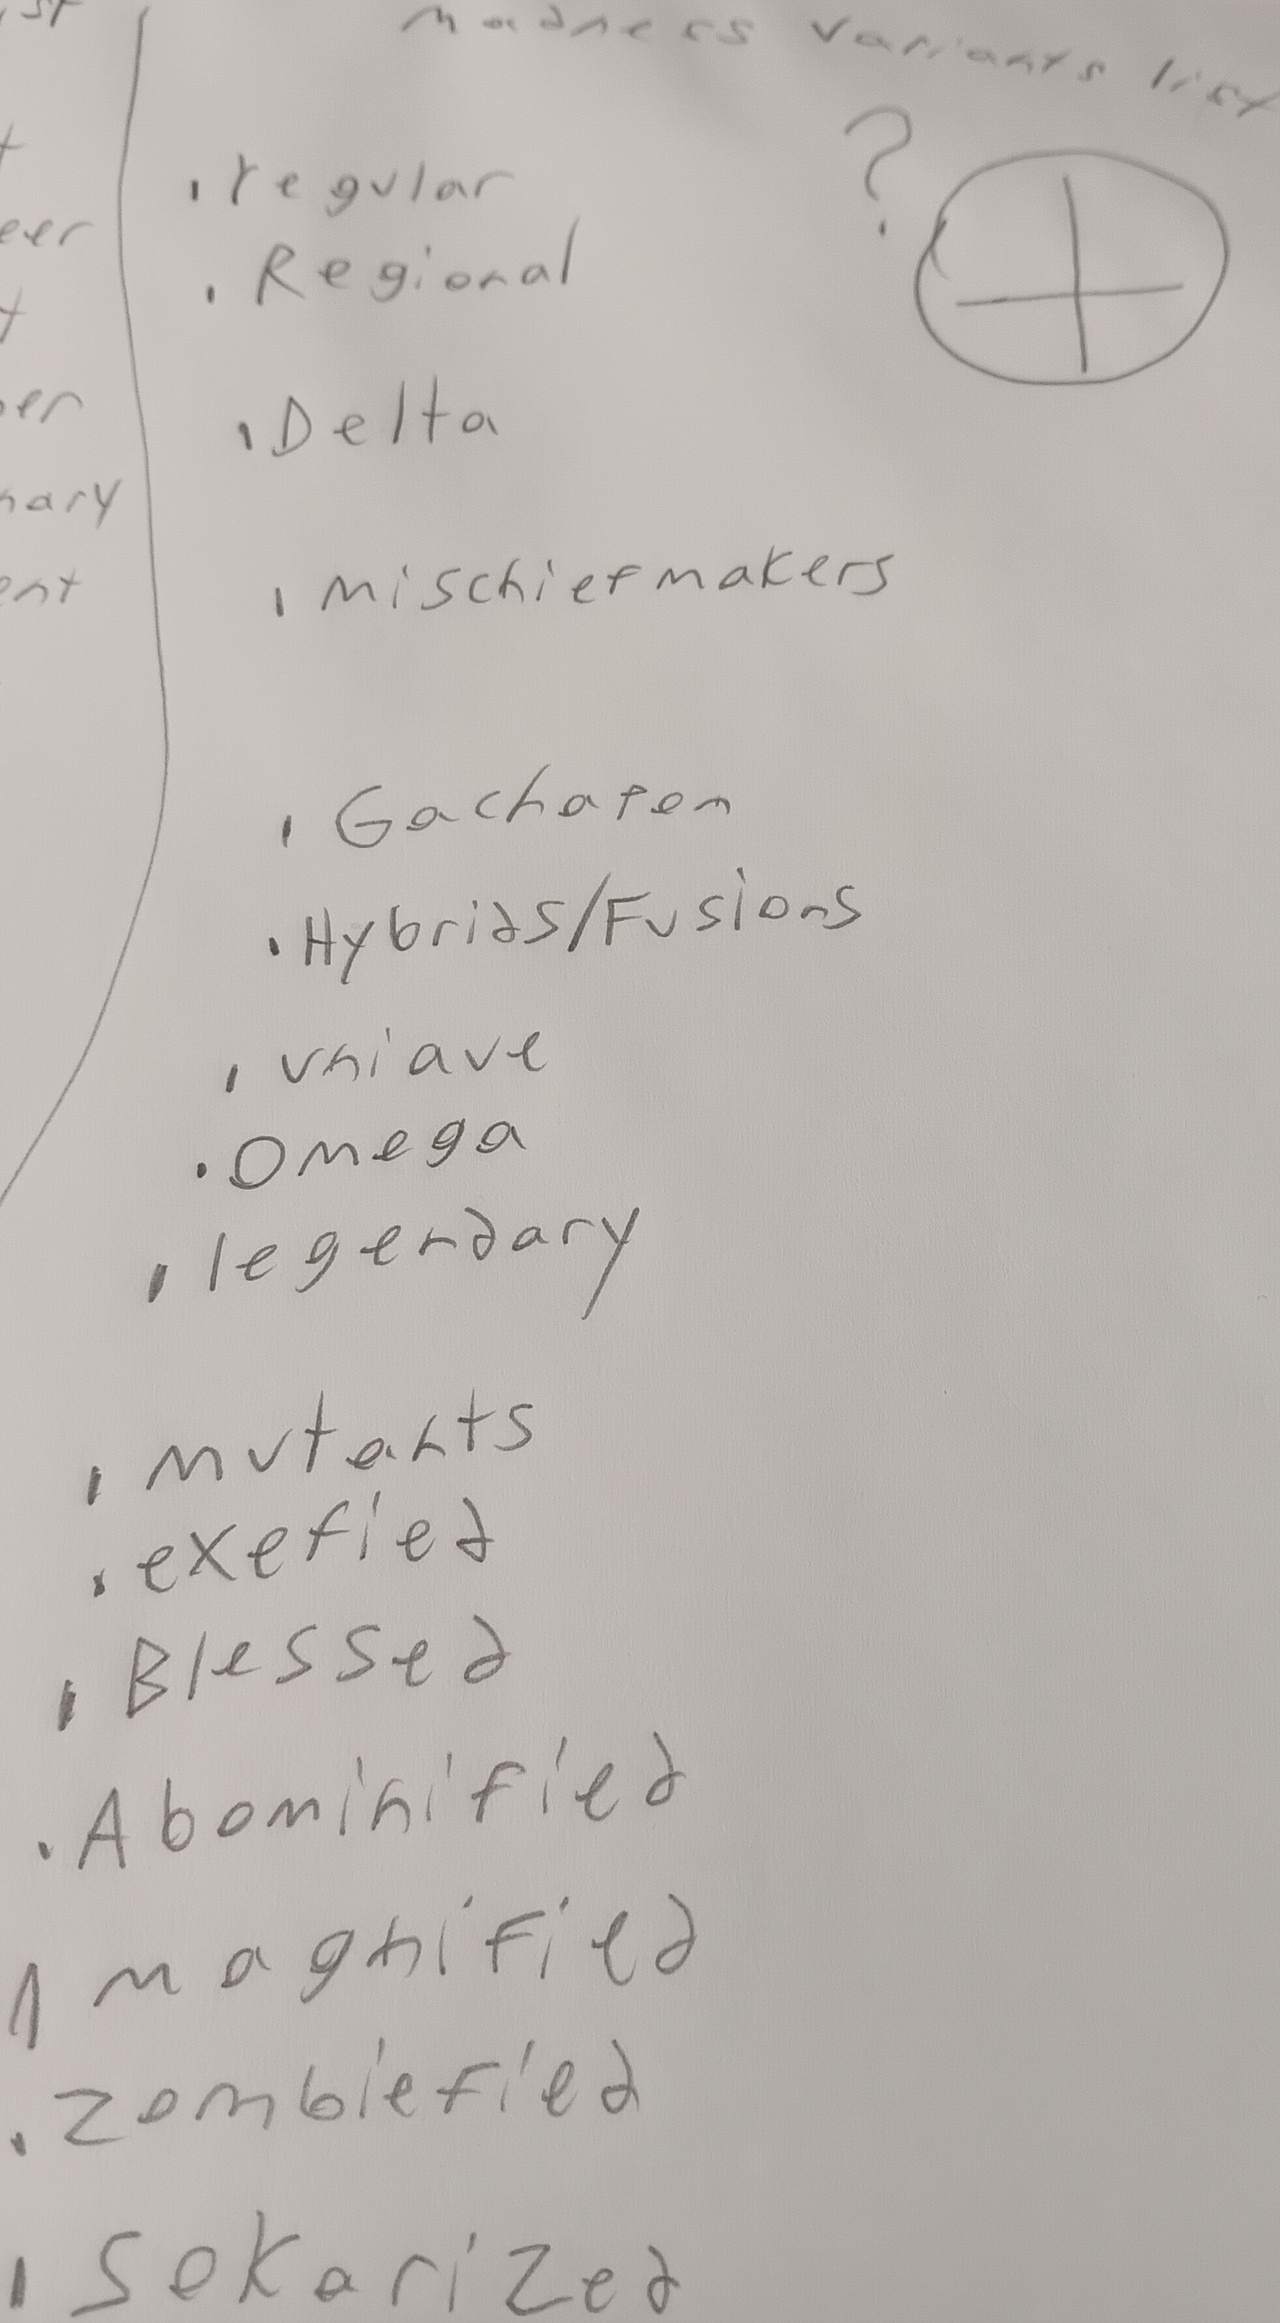 Madness Variants list
?
. regular
. Regional
. Delta
. mischiefmakers
. Gachafen
. Hybrids/Fusions
. uniave
. Omega
. legendary
. mutants
. exefied
. Blessed
. Abominified
. magnified
. zombiefied
. Sokarized